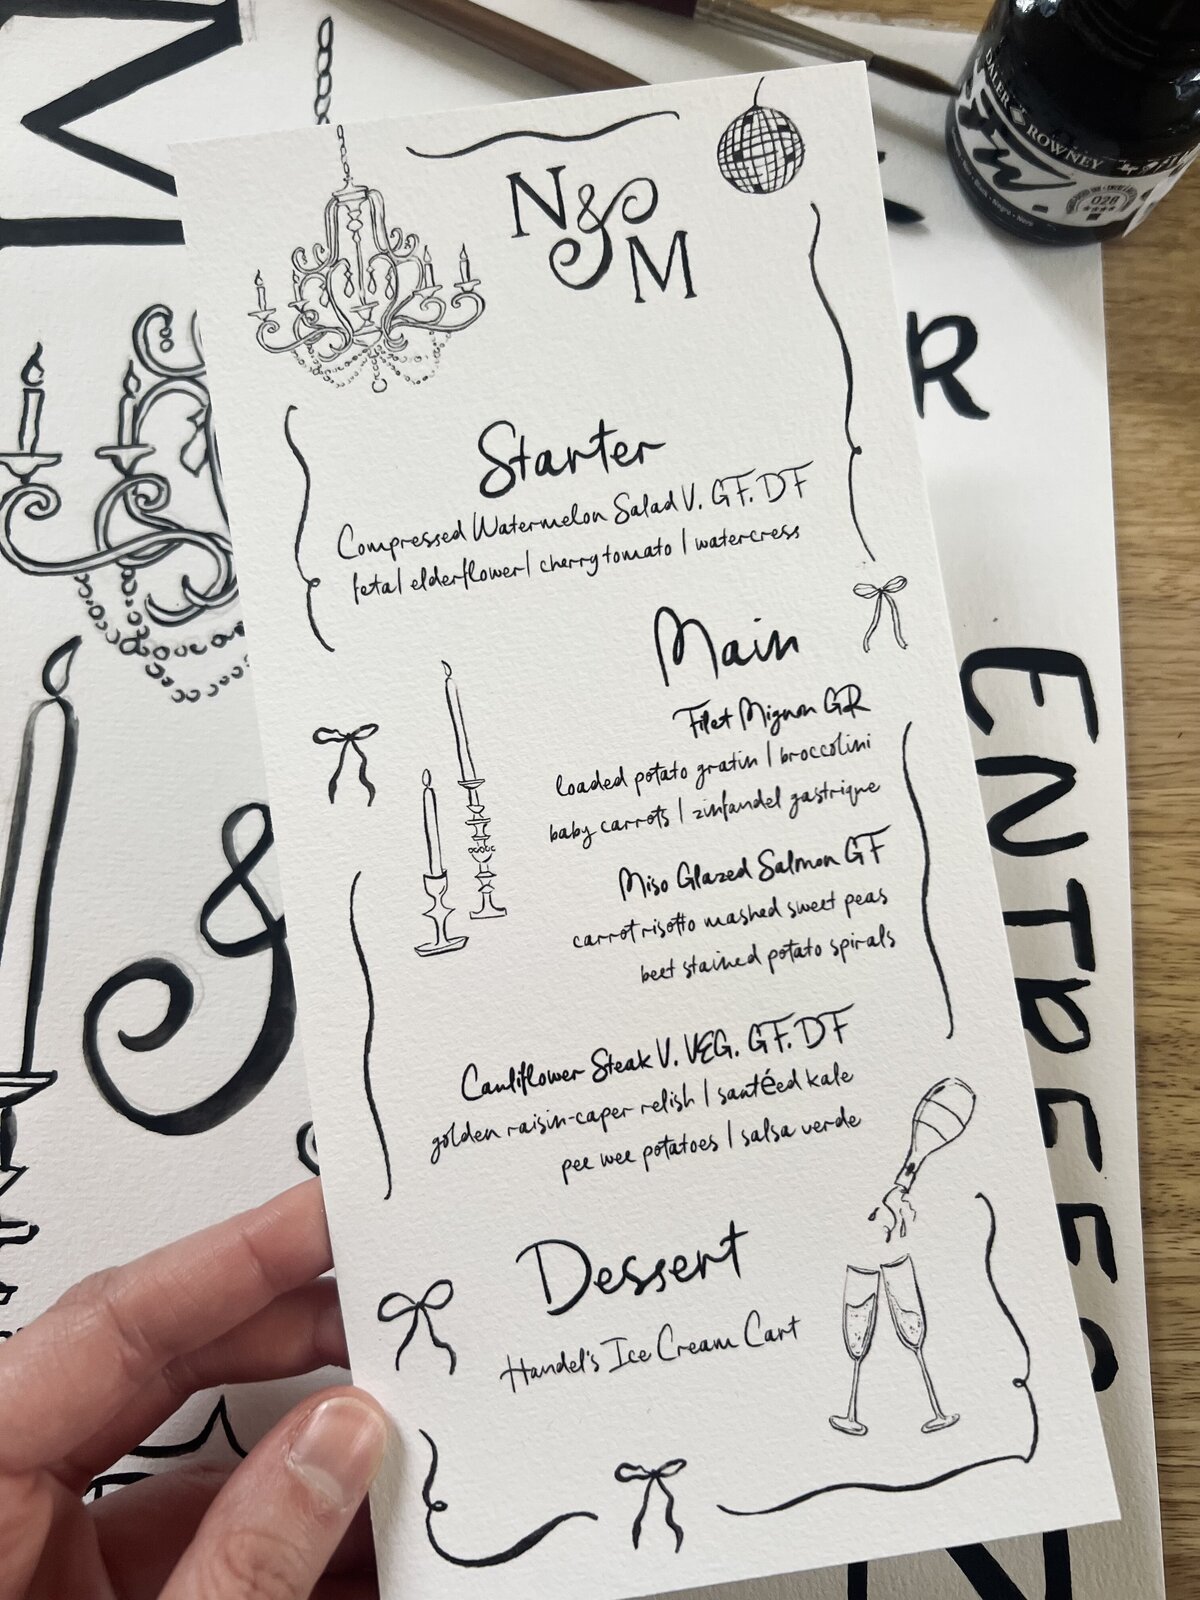 N & M
Starter
Compressed Watermelon Salad V. GF. DF
feta | elderflower | cherry tomato | watercress
Main
Filet Mignon GR
loaded potato gratin | broccolini
baby carrots | zinfandel gastrique
Miso Glazed Salmon GF
carrot risotto mashed sweet peas
beet stained potato spirals
Cauliflower Steak V. VEG. GF. DF
golden raisin-caper relish | sautéed kale
pee wee potatoes | salsa verde
Dessert
Handel's Ice Cream Cart
&
R
ENTREES
DALER ROWNEY
028